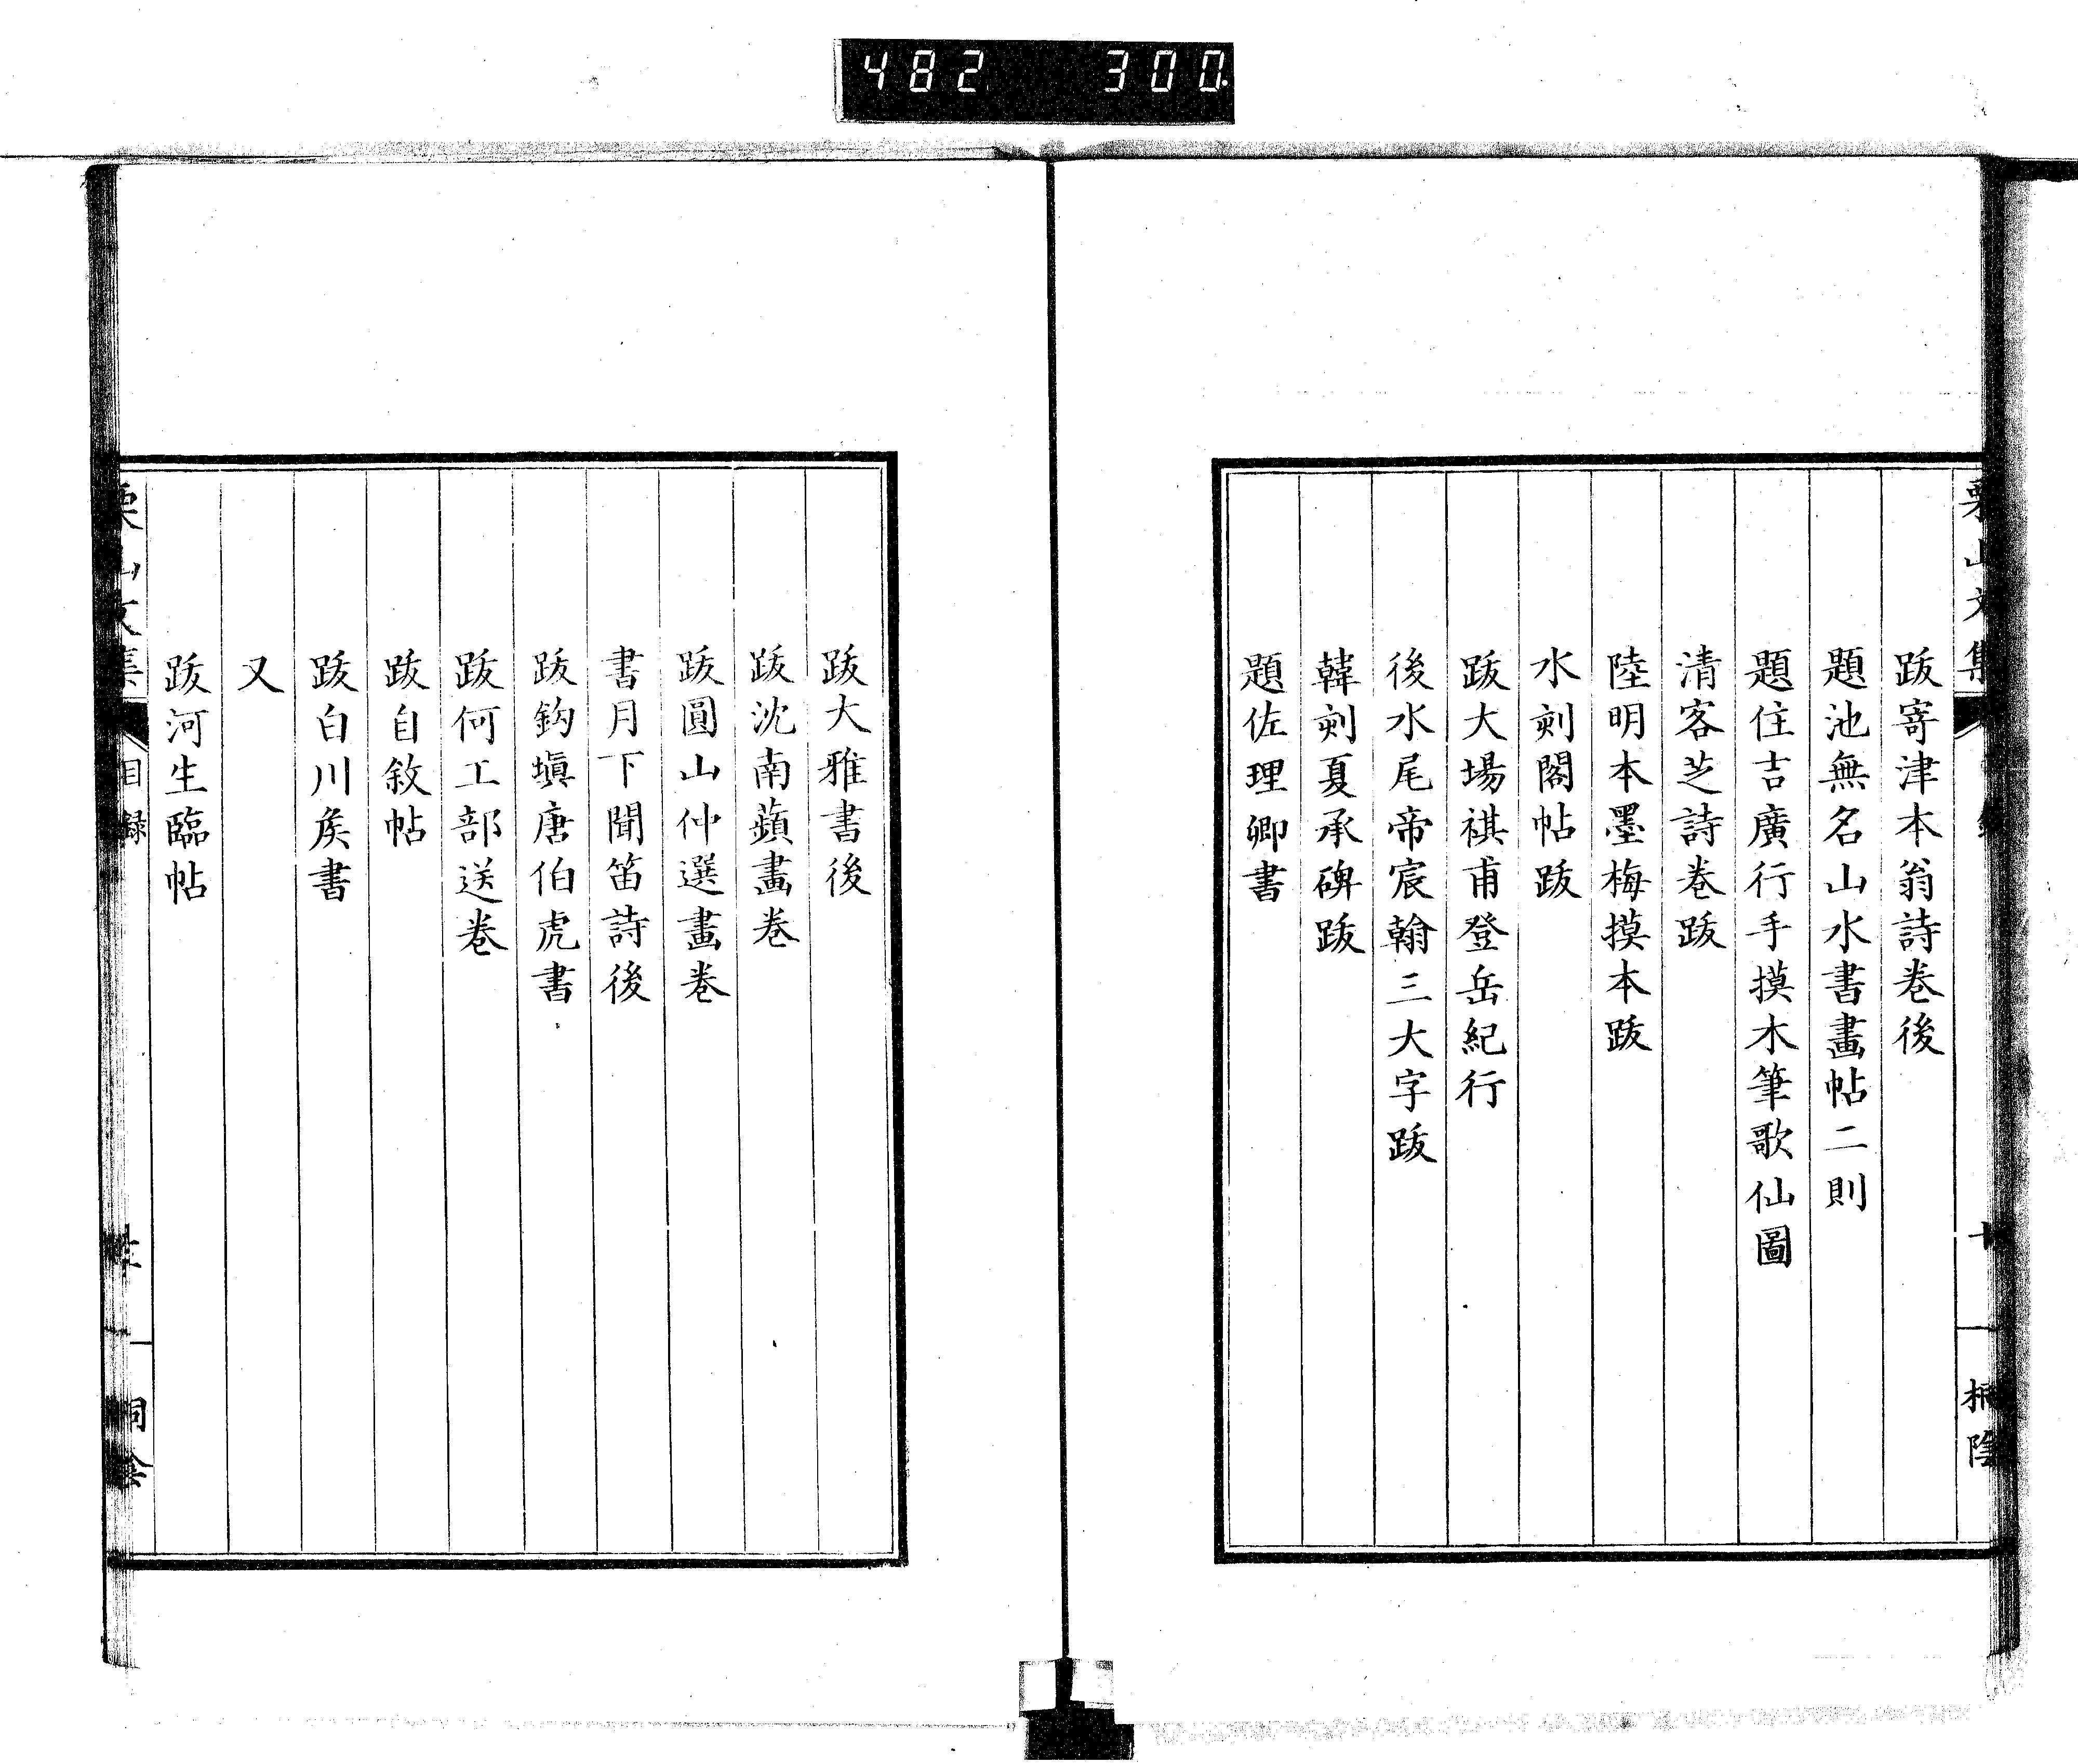 482 300
栗山文集
桐陰
跋寄津本翁詩卷後
題池無名山水書畫帖二則
題住吉廣行手摸木筆歌仙圖
清客芝詩卷跋
陸明本墨梅摸本跋
水刻閣帖跋
跋大場祺甫登岳紀行
後水尾帝宸翰三大字跋
韓刻夏承碑跋
題佐理卿書
跋大雅書後
跋沈南蘋畫卷
跋圓山仲選畫卷
書月下聞笛詩後
跋鈎塡唐伯虎書
跋何工部送卷
跋自敘帖
跋白川矦書
又
跋河生臨帖
栗山文集
目録